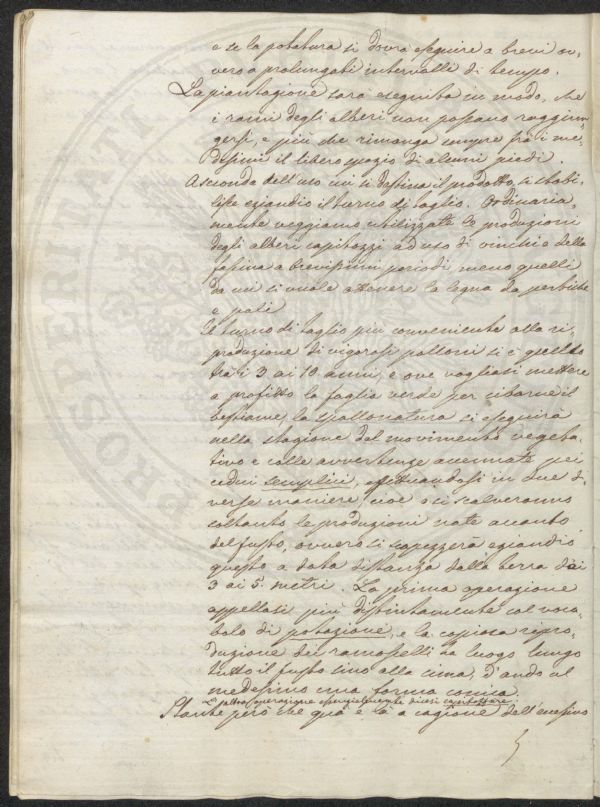 e se la potatura si dovrà eseguire a brevi ov-
vero a prolungati intervalli di tempo.
La piantagione sarà eseguita in modo, che
i rami degli alberi non possano raggiun-
gersi, e più che rimanga sempre fra i me-
desimi il libero spazio di alcuni piedi.
A seconda dell'uso cui si destina il prodotto, si stabi-
lisce eziandio il turno di taglio. Ordinaria-
mente veggiamo utilizzate le produzioni
degli alberi capitozzi ad uso di vinchi e della
fascina a brevissimi periodi, meno quelli
da cui si vuole ottenere la legna da pertiche
e pali
Il turno di taglio più conveniente alla ri-
produzione di vigorosi polloni si è quello
tra i 3 ai 10 anni, e ove vogliasi mettere
a profitto la foglia verde per cibarne il
bestiame, la spollonatura si eseguirà
nella stagione del movimento vegeta-
tivo e colle avvertenze accennate pei
cedui semplici, effettuandosi in due di-
verse maniere, cioè o si scalveranno
soltanto le produzioni nate accanto
del fusto, ovvero si scapezzerà eziandio
questo a data distanza dalla terra dai
3 ai 5 metri. La prima operazione
appellasi più distintamente col voca-
bolo di potazione, e la copiosa ripro-
duzione dei ramoscelli ha luogo lungo
tutto il fusto sino alla cima, dando al
medesimo una forma conica.
La altra operazione specialmente dicesi capitozzare.
Stante però che qua e là a cagione dell'eccessivo
PROSPERITATI